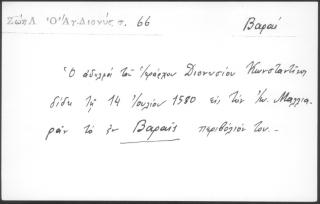 Ζώη Λ. Ὁ Ἅγ. Διονύσ. σ. 66
Βαραί
Ὁ ἀδελφός τοῦ Ἱεράρχου Διονυσίου Κωνσταντῖνος
δίδει τῇ 14 Ἰουλίου 1580 εἰς τόν Ἰω. Μαλλια-
ρᾶν τό ἐν Βαραίς περιβόλιόν του. —